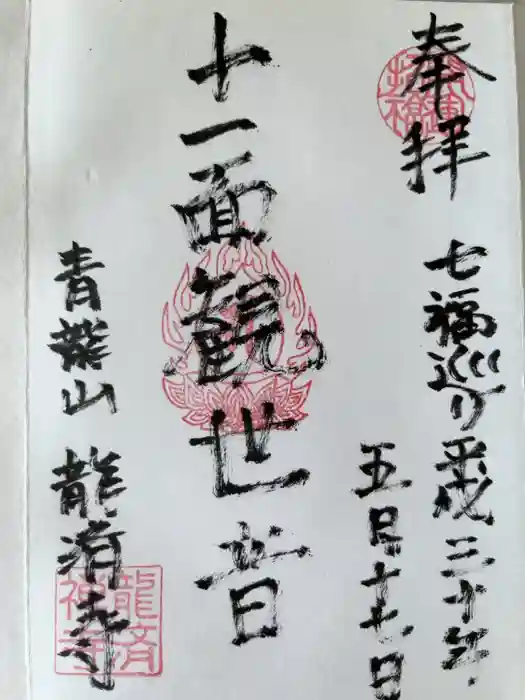 奉拝
七福巡り 平成三十年
五月十七日
十一面観世音
青龍山 龍済寺
龍済
禅寺